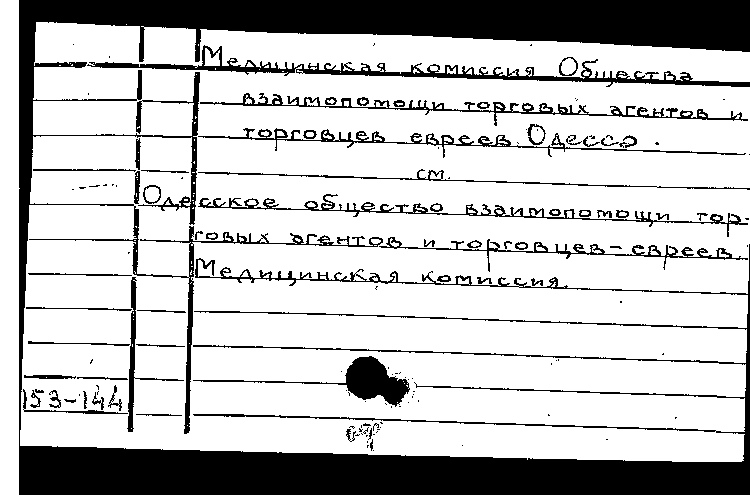 Медицинская комиссия Общества
взаимопомощи торговых агентов и
торговцев евреев Одесса.
см.
Одесское общество взаимопомощи тор-
говых агентов и торговцев-евреев.
Медицинская комиссия.
153-144